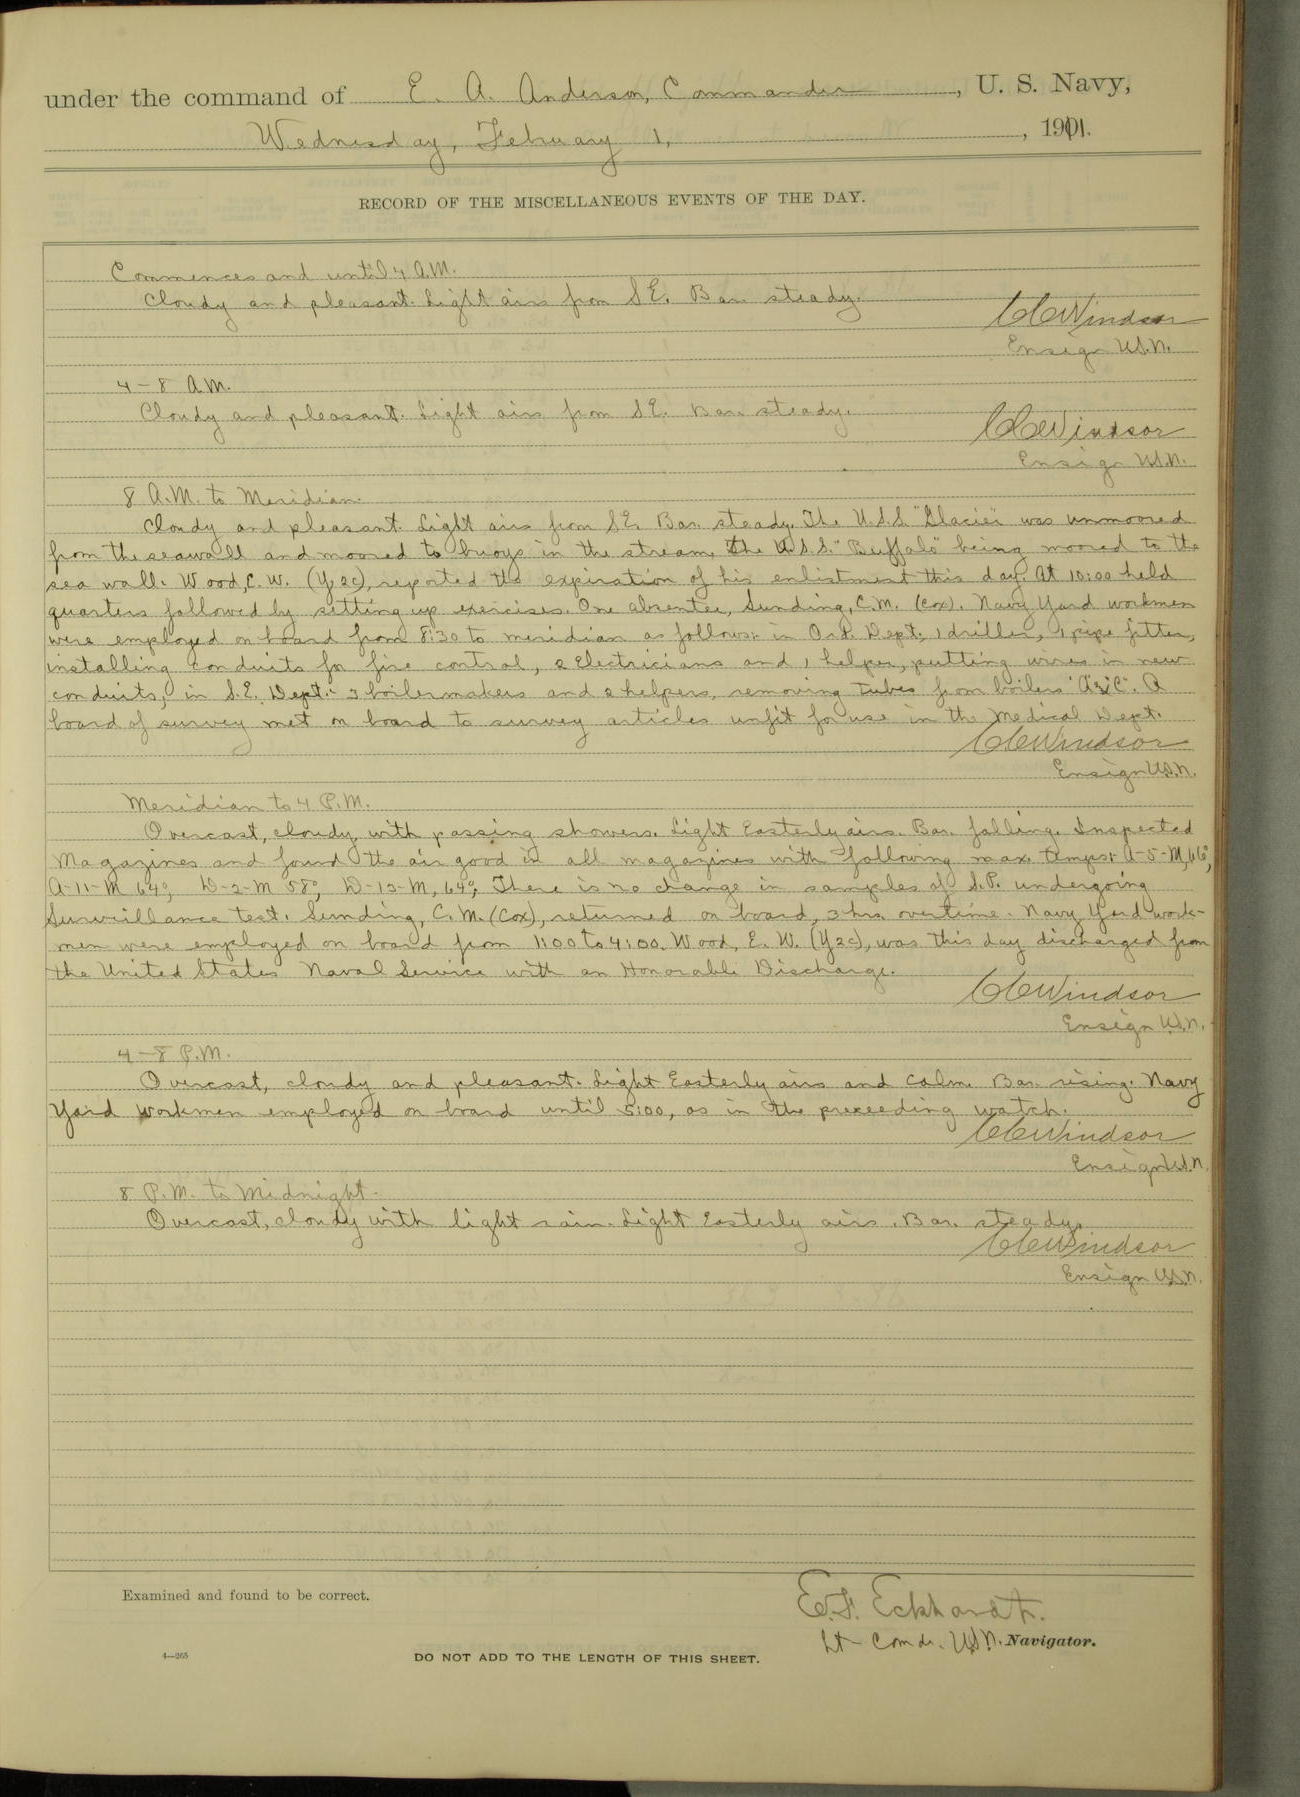 under the command of E. A. Anderson, Commander, U. S. Navy,
Wednesday, February 1, 1911.
RECORD OF THE MISCELLANEOUS EVENTS OF THE DAY.
Commences and until 4 A.M.
Cloudy and pleasant. Light airs from SE. Bar. steady.
CCWindsor
Ensign U.S.N.
4-8 A.M.
Cloudy and pleasant. Light airs from SE. Bar. steady.
CCWindsor
Ensign U.S.N.
8 A.M. to Meridian.
Cloudy and pleasant. Light airs from SE. Bar. steady. The U.S.S. "Glacier" was unmoored
from the seawall and moored to buoys in the stream, the U.S.S. "Buffalo" being moored to the
sea wall. Wood, C. W. (Y2c), reported the expiration of his enlistment this day. At 10:00 held
quarters followed by setting up exercises. One absentee, Sunding, C.M. (Cox). Navy Yard workmen
were employed on board from 8:30 to meridian as follows:- in Ord. Dept., 1 driller, 1 pipe fitter,
installing conduits for fire control, 2 Electricians and 1 helper, putting wires in new
conduits; in S.E. Dept:- 3 boilermakers and 2 helpers, removing tubes from boilers "A"&"C". A
board of survey met on board to survey articles unfit for use in the Medical Dept.
CCWindsor
Ensign U.S.N.
Meridian to 4 P.M.
Overcast, cloudy with passing showers. Light Easterly airs. Bar. falling. Inspected
Magazines and found the air good in all magazines with following max. temps:- A-5-M, 66°,
A-11-M 64°, D-2-M 58°, D-13-M, 64°, There is no change in samples of S.P. undergoing
Surveillance test. Sunding, C. M. (Cox), returned on board, 3 hrs. overtime. Navy Yard work-
men were employed on board from 1:00 to 4:00. Wood, E. W. (Y2c), was this day discharged from
the United States Naval Service with an Honorable Discharge.
CCWindsor
Ensign U.S.N.
4-8 P.M.
Overcast, cloudy and pleasant. Light Easterly airs and calm. Bar. rising. Navy
Yard workmen employed on board until 5:00, as in the preceeding watch.
CCWindsor
Ensign U.S.N.
8 P.M. to Midnight.
Overcast, cloudy with light rain. Light Easterly airs. Bar. steady.
CCWindsor
Ensign U.S.N.
Examined and found to be correct.
E.F. Eckhardt.
Lt-Comdr. U.S.N. Navigator.
4—265
DO NOT ADD TO THE LENGTH OF THIS SHEET.